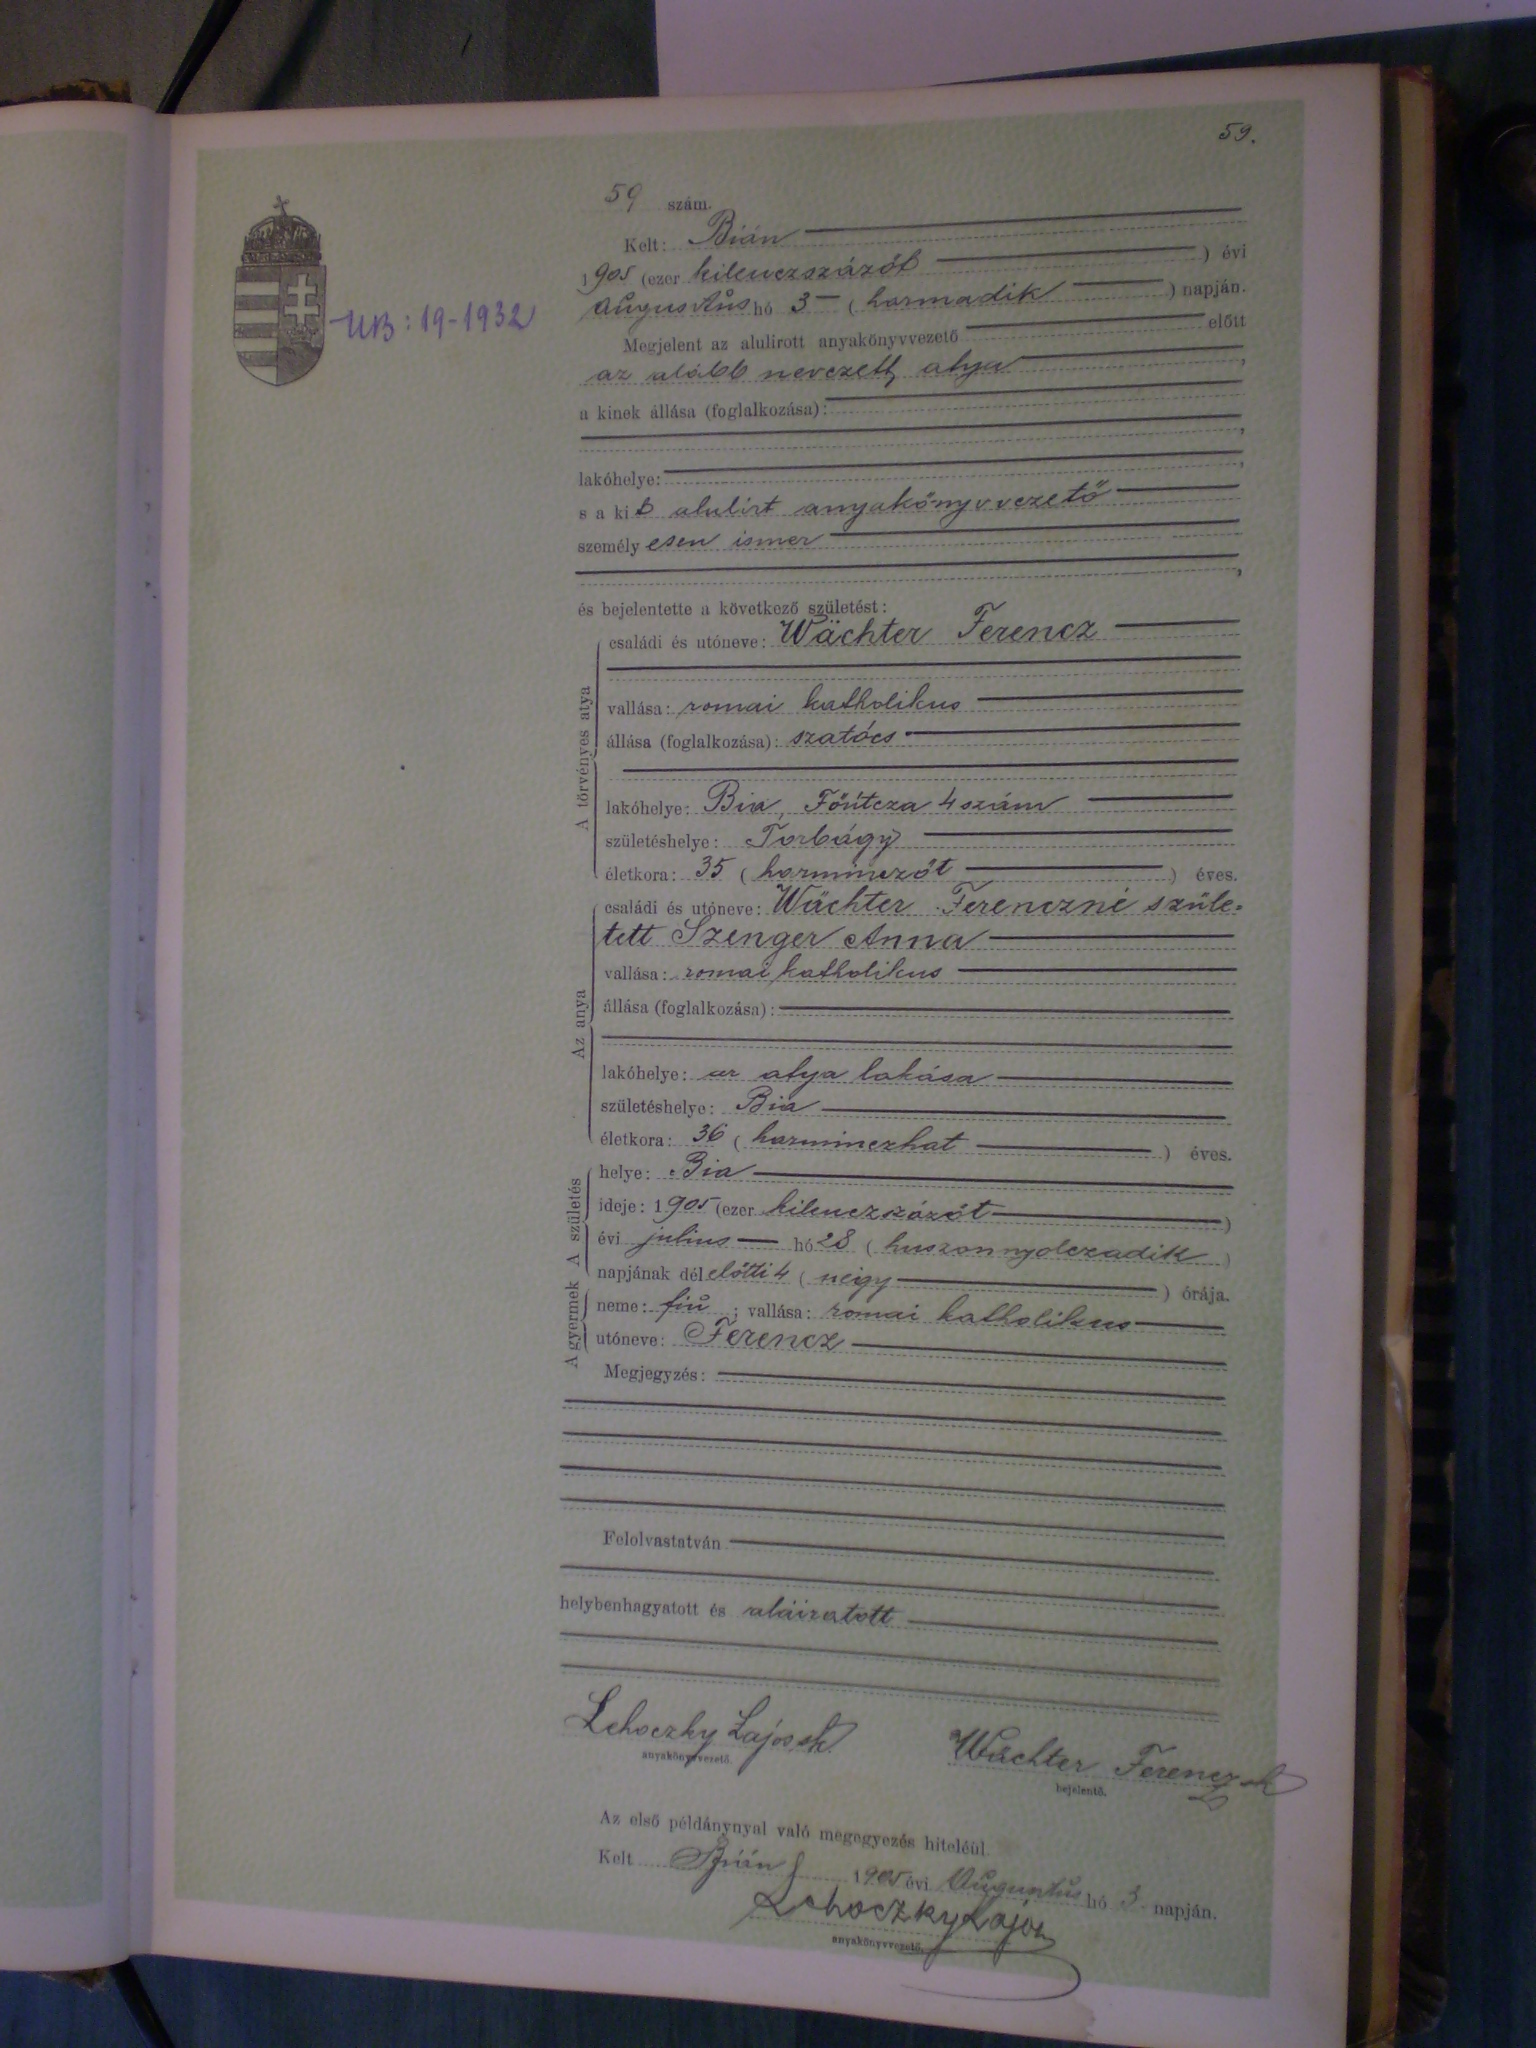 59.
59 szám.
Kelt: Bián
1905 (ezer kilenczszázöt ) évi
Augusztus hó 3 ( harmadik ) napján.
UB: 19-1932
Megjelent az alulirott anyakönyvvezető előtt
az alább nevezett atya ,
a kinek állása (foglalkozása):
,
lakóhelye: ,
s a kit alulirt anyakönyvvezető
személyesen ismer
,
és bejelentette a következő születést:
A törvényes atya
családi és utóneve: Wächter Ferencz
vallása: romai katholikus
állása (foglalkozása): szatócs
lakóhelye: Bia, Főútcza 4 szám
születéshelye: Torbágy
életkora: 35 ( harminczöt ) éves.
Az anya
családi és utóneve: Wächter Ferenczné szüle-
tett Szenger Anna
vallása: romai katholikus
állása (foglalkozása):
lakóhelye: az atya lakása
születéshelye: Bia
életkora: 36 ( harminczhat ) éves.
A születés
helye: Bia
ideje: 1905 (ezer kilenczszázöt )
évi julius hó 28 ( huszonnyolczadik )
napjának délelőtti 4 ( négy ) órája.
A gyermek
neme: fiú ; vallása: romai katholikus
utóneve: Ferencz
Megjegyzés:
Felolvastatván
helybenhagyatott és aláiratott
Lehoczky Lajos sk Wächter Ferencz sk
anyakönyvvezető. bejelentő.
Az első példánynyal való megegyezés hiteléül.
Kelt Bián 1905 évi Augusztus hó 3 napján.
Lehoczky Lajos
anyakönyvvezető.